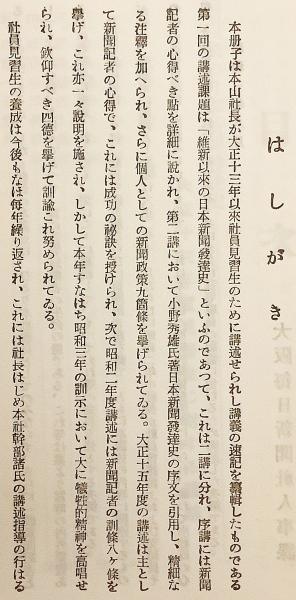 はしがき
本册子は本山社長が大正十三年以來社員見習生のために講述せられし講義の速記を纂輯したものである
第一回の講述課題は「維新以來の日本新聞發達史」といふのであつて、これは二講に分れ、序講には新聞
記者の心得べき點を詳細に說かれ、第二講において小野秀雄氏著日本新聞發達史の序文を引用し、精細な
る注釋を加へられ、さらに個人としての新聞政策九箇條を擧げられてゐる。大正十五年度の講述は主とし
て新聞記者の心得で、これには成功の祕訣を授けられ、次で昭和二年度講述には新聞記者の訓條八ヶ條を
擧げ、これ亦一々說明を施され、しかして本年すなはち昭和三年の訓示において大に犧牲的精神を高唱せ
られ、欽仰すべき四德を擧げて訓諭これ努められてゐる。
社員見習生の養成は今後もなほ每年繰り返され、これには社長はじめ本社幹部諸氏の講述指導の行はる